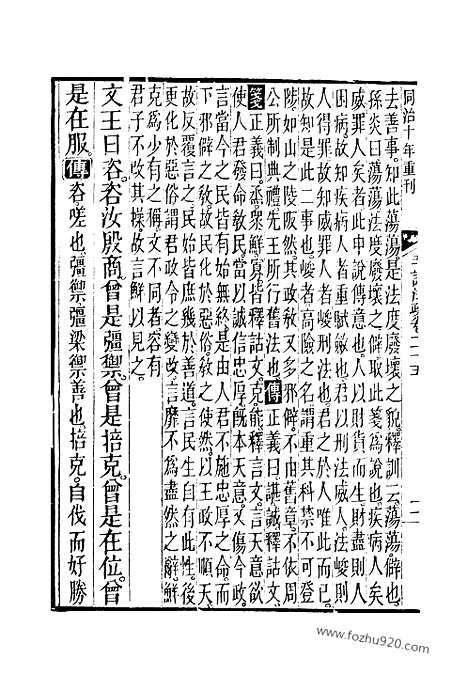 同治十年重刊
去善事。知此蕩蕩是法度廢壞之貌。釋訓云。蕩蕩。僻也。
孫炎曰。蕩蕩。法度廢壞之僻。取此箋爲說也。疾病人矣。
威罪人矣者。此申說傳意也。人以財貨而生。財盡則人
困病。故知疾病人者。重賦斂也。君以刑法威人。法峻則
人得罪。故知威罪人者。峻刑法也。君之於人。唯此而已。
故知是此二事也。峻者高險之名。謂重其科禁。不可登
陵。如山之陵阪然。其政敎又多邪僻。不由舊章。不依周
公所制典禮。先王所其行舊法也。傳正義曰。諶。誠。釋詁文。
箋正義曰。烝。衆。鮮。寡。皆釋詁文。克。能。釋言文。言天意欲
使人君發命敎民。當以誠信忠厚。旣本天意。又傷今政。
言當今之民。皆有始無終。是由人君不施忠厚之命。而
下邪僻之敎。故民化於惡俗。敎之使然。以王政不順天。
故反覆言之。民始皆庶幾於善道。言民生自有此性。後
更化於惡俗。謂君政令之變改。言靡不爲盡然之辭。鮮
克爲少有之稱。文不同者。容有
君子不改其操。故言鮮以見之。
文王曰咨。咨汝殷商。曾是彊禦。曾是掊克。曾是在位。曾
是在服。傳咨。嗟也。彊禦。彊梁禦善也。掊克。自伐而好勝
www.fozhu920.com